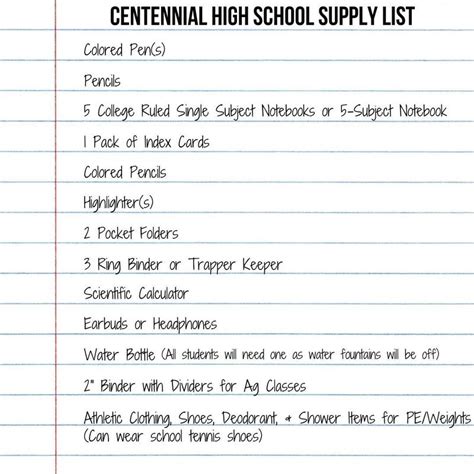 CENTENNIAL HIGH SCHOOL SUPPLY LIST
Colored Pen(s)
Pencils
5 College Ruled Single Subject Notebooks or 5-Subject Notebook
1 Pack of Index Cards
Colored Pencils
Highlighter(s)
2 Pocket Folders
3 Ring Binder or Trapper Keeper
Scientific Calculator
Earbuds or Headphones
Water Bottle (All students will need one as water fountains will be off)
2" Binder with Dividers for Ag Classes
Athletic Clothing, Shoes, Deodorant, & Shower Items for PE/Weights
(Can wear school tennis shoes)